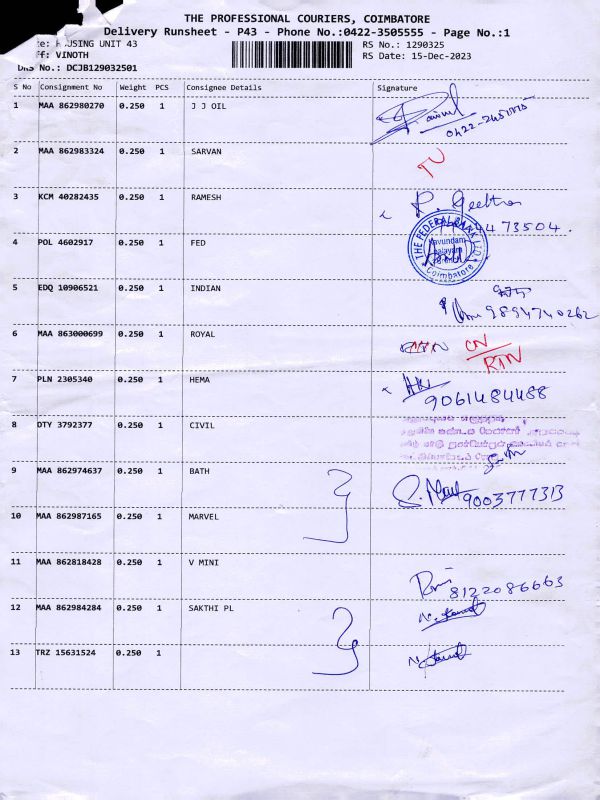 THE PROFESSIONAL COURIERS, COIMBATORE
Delivery Runsheet - P43 - Phone No.:0422-3505555 - Page No.:1
UNIT 43 RS No.: 1290325
VINOTH RS Date: 15-Dec-2023
DRS No.: DCJB129032501
S No Consignment No Weight PCS Consignee Details Signature
1 MAA 862980270 0.250 1 J J OIL
2 MAA 862983324 0.250 1 SARVAN
3 KCM 40282435 0.250 1 RAMESH
4 POL 4602917 0.250 1 FED THE FEDERAL BANK LTD. Coimbatore
5 EDQ 10906521 0.250 1 INDIAN
9894740262
6 MAA 863000699 0.250 1 ROYAL
RTN
7 PLN 2305340 0.250 1 HEMA
9061484488
8 DTY 3792377 0.250 1 CIVIL
9 MAA 862974637 0.250 1 BATH
9003777313
10 MAA 862987165 0.250 1 MARVEL
11 MAA 862818428 0.250 1 V MINI
8122086663
12 MAA 862984284 0.250 1 SAKTHI PL
13 TRZ 15631524 0.250 1